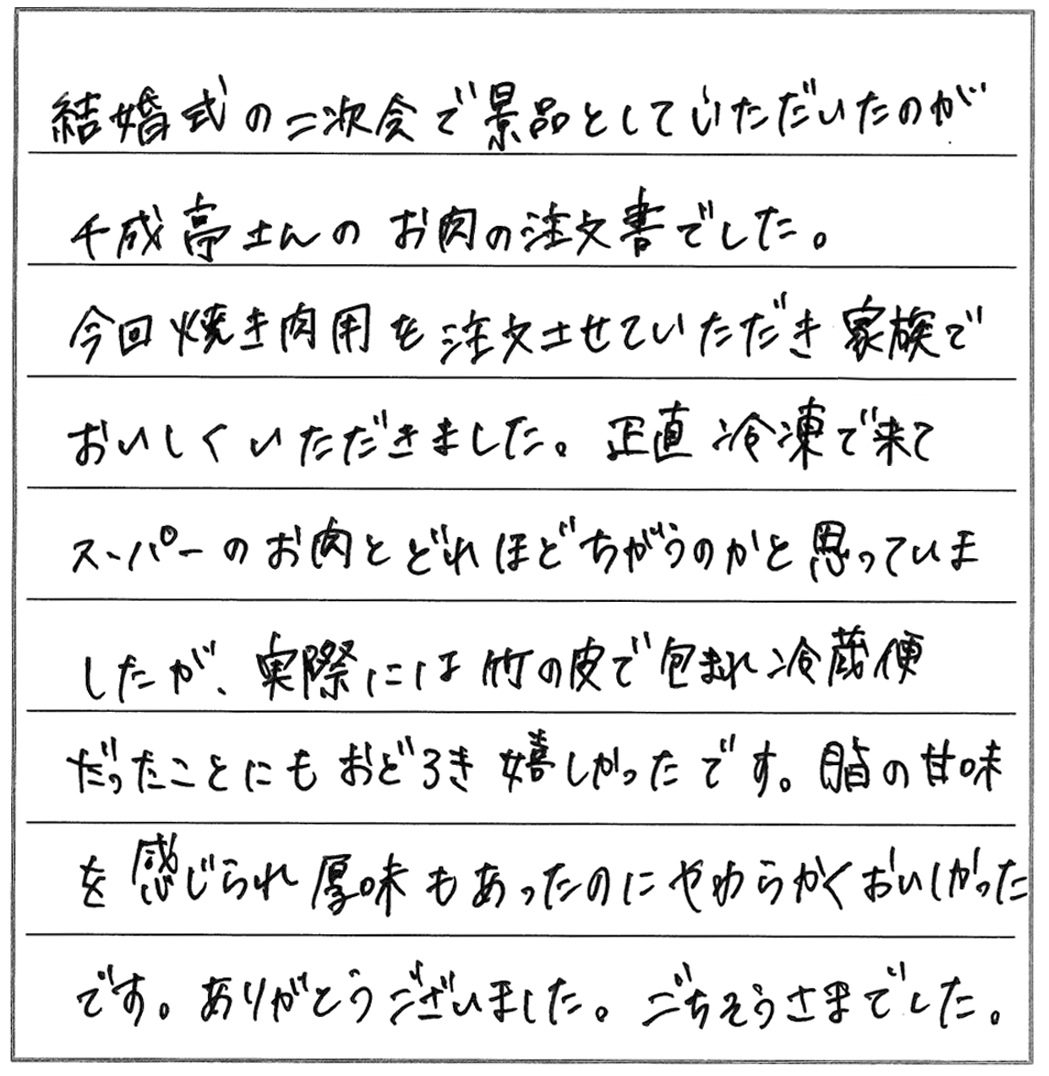 結婚式の二次会で景品としていただいたのが
千成亭さんのお肉の注文書でした。
今回焼き肉用を注文させていただき家族で
おいしくいただきました。正直冷凍で来て
スーパーのお肉とどれほどちがうのかと思っていま
したが、実際には竹の皮で包まれ冷蔵便
だったことにもおどろき嬉しかったです。脂の甘味
を感じられ厚味もあったのにやわらかくおいしかった
です。ありがとうございました。ごちそうさまでした。